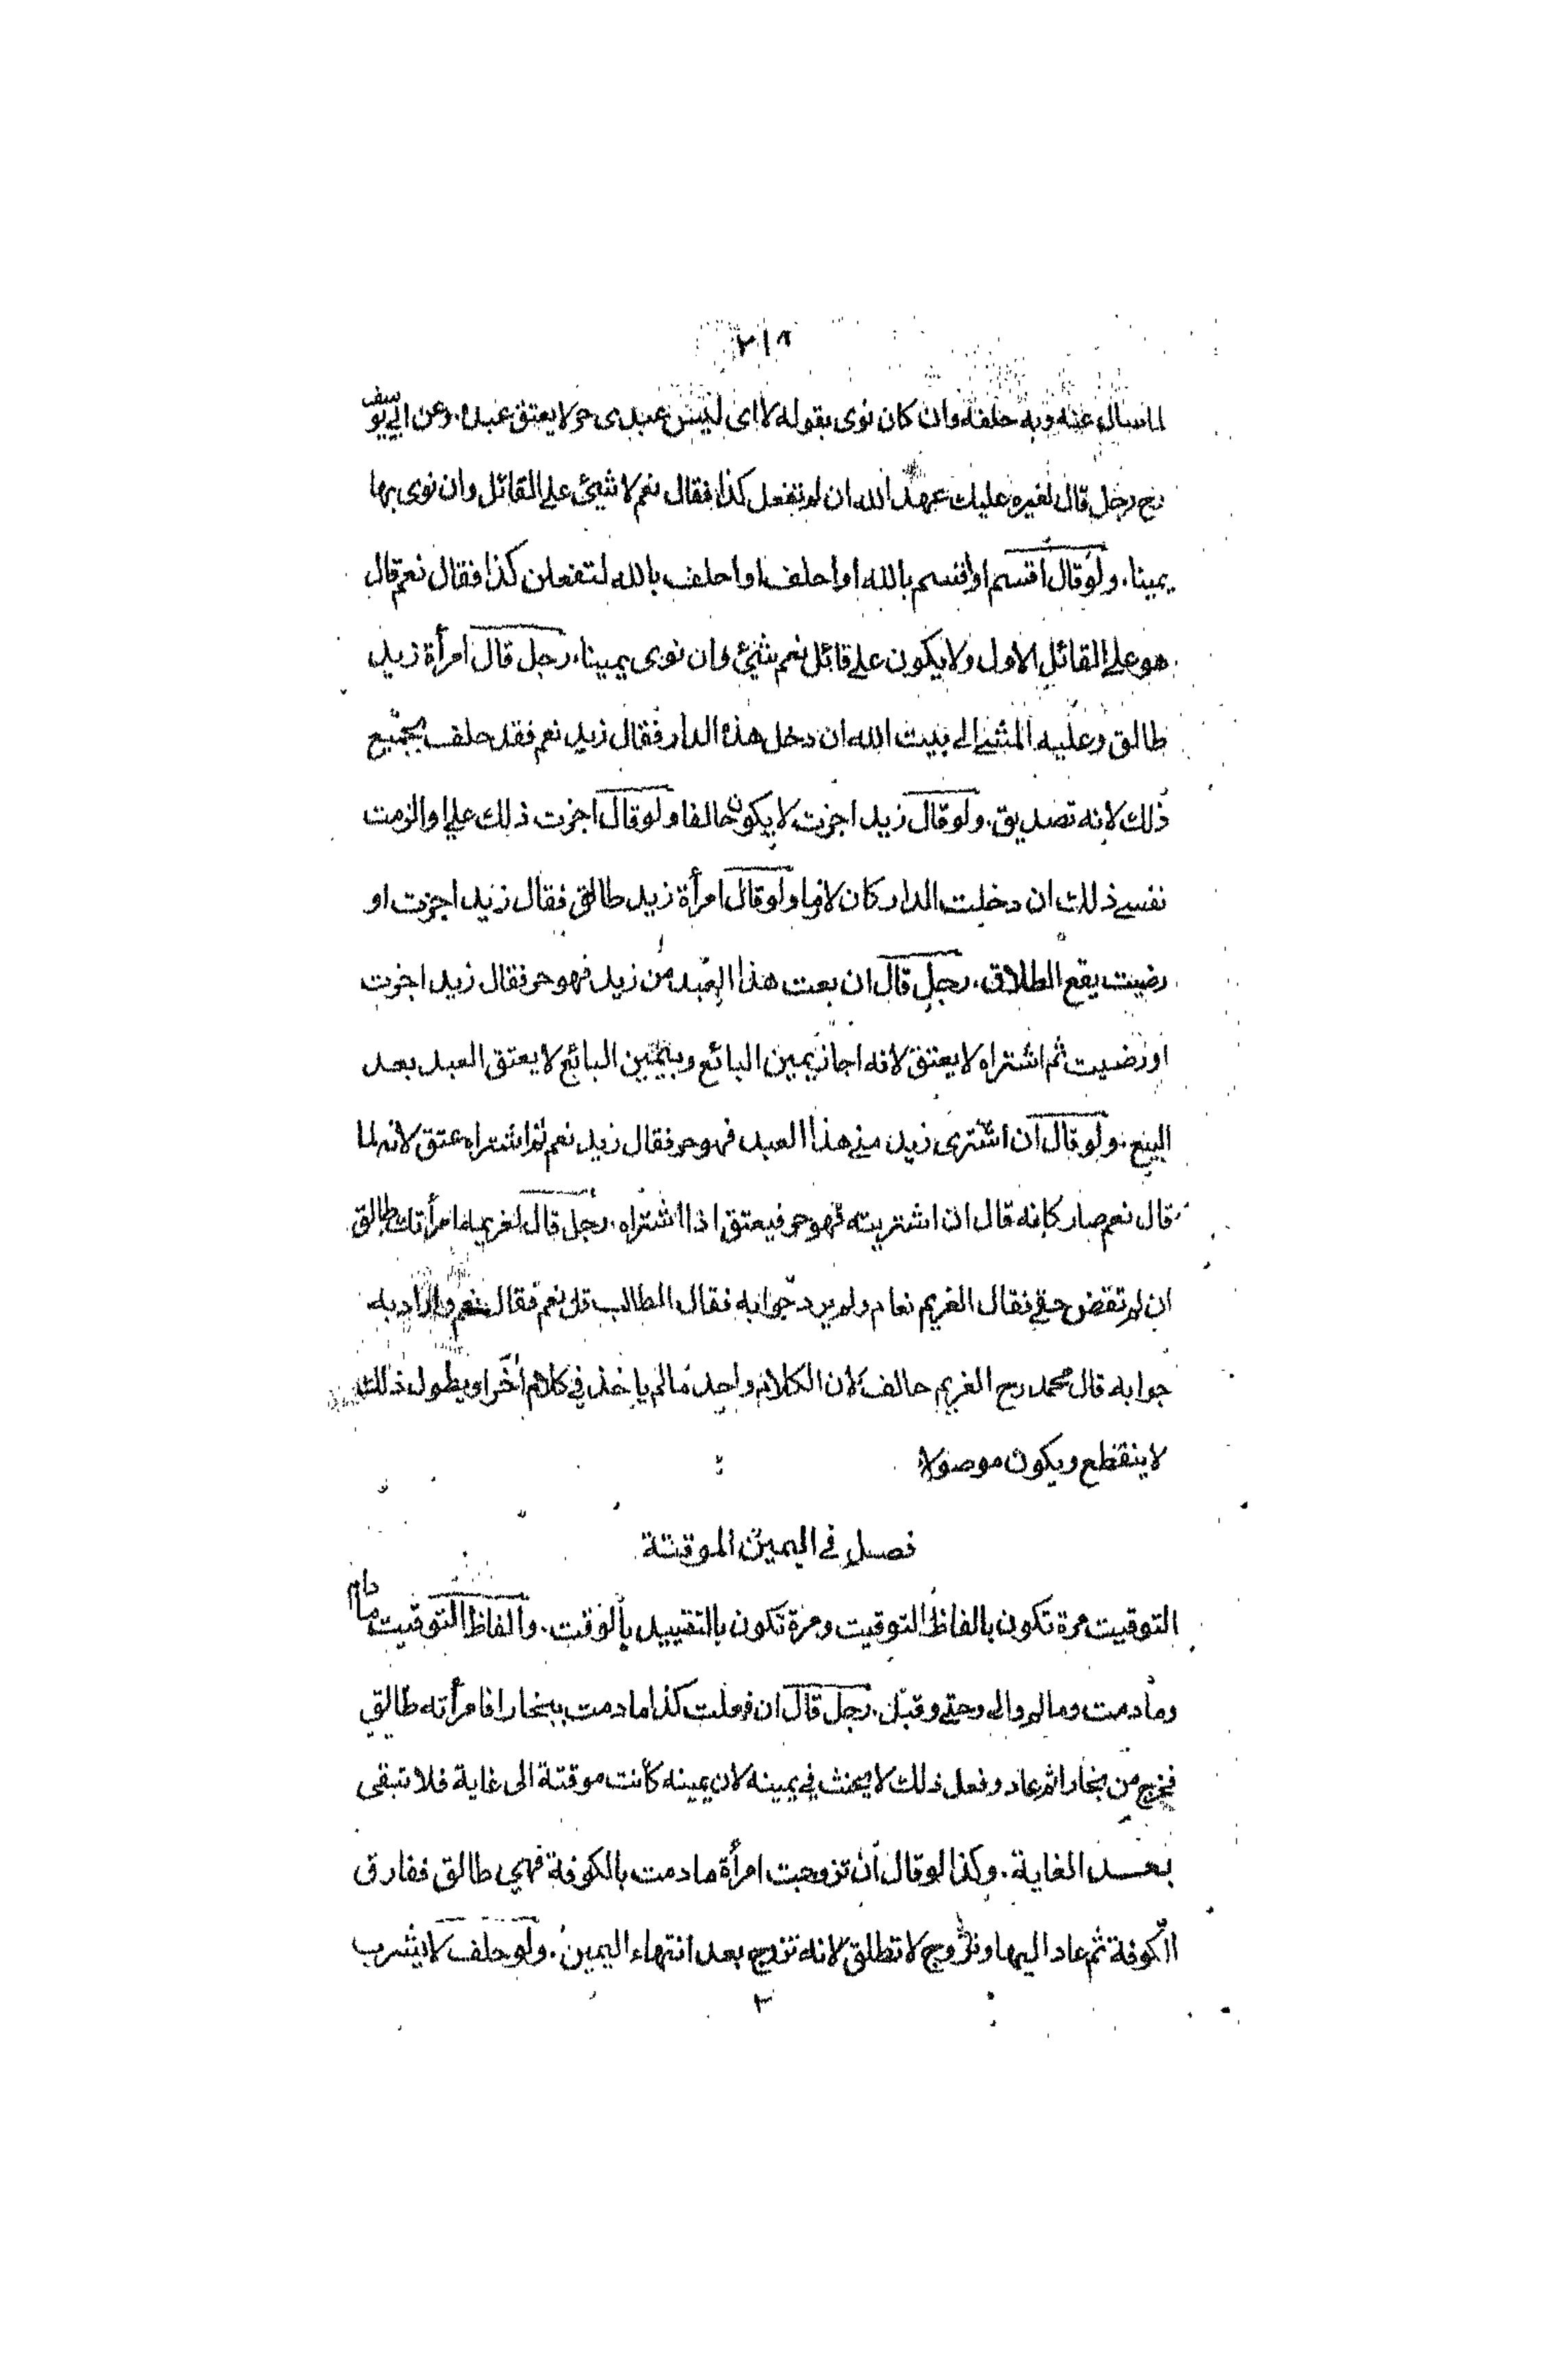 ٢١٨
لما سأل عنه وبه حلفه وان كان نوى بقوله لا اى ليس عبدى حر لا يعتق عبده. وعن ابي يوسف
رح رجل قال لغيره عليك عهد الله ان لم تفعل كذا فقال نعم لا شيئ على القائل وان نوى بها
يمينا. ولو قال اقسم او اقسم بالله او احلف او احلف بالله لتفعلن كذا فقال نعم قال
هو على القائل الاول ولا يكون على قائل نعم شيئ وان نوى يمينا. رجل قال امرأة زيد
طالق وعليه المشي الى بيت الله ان دخل هذه الدار فقال زيد نعم فقد حلف بجميع
ذلك لانه تصديق. ولو قال زيد اجزت لا يكون حالفا ولو قال اجزت ذلك علي او الزمت
نفسي ذلك ان دخلت الدار كان لازما ولو قال امرأة زيد طالق فقال زيد اجزت او
رضيت يقع الطلاق. رجل قال ان بعت هذا العبد من زيد فهو حر فقال زيد اجزت
او رضيت ثم اشتراه لا يعتق لانه اجاز يمين البائع وبيمين البائع لا يعتق العبد بعد
البيع. ولو قال ان اشترى زيد مني هذا العبد فهو حر فقال زيد نعم ثم اشتراه عتق لانه لما
قال نعم صار كانه قال ان اشتريته فهو حر فيعتق اذا اشتراه. رجل قال لغريمه امرأتك طالق
ان لم تقض حقي فقال الغريم نعام ولم يرد جوابه فقال الطالب قل نعم فقال نعم واراد به
جوابه قال محمد رح الغريم حالف لان الكلام واحد مالم ياخذ في كلام اخر او يطول ذلك
لا ينقطع ويكون موصولا
فصل في اليمين الموقتة
التوقيت مرة تكون بالفاظ التوقيت ومرة تكون بالتقييد بالوقت. والفاظ التوقيت مادام
وما دمت ومالم والى وحتى وقبل. رجل قال ان فعلت كذا ما دمت ببخارا فامرأته طالق
فخرج من بخارا ثم عاد وفعل ذلك لا يحنث في يمينه لان يمينه كانت موقتة الى غاية فلا تبقى
بعد الغاية. وكذا لو قال ان تزوجت امرأة ما دمت بالكوفة فهي طالق ففارق
الكوفة ثم عاد اليها وتزوج لا تطلق لانه تزوج بعد انتهاء اليمين. ولو حلف لا يشرب
٢